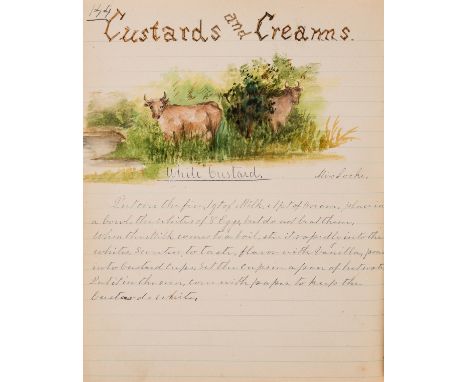 144
Custards and Creams.
White Custard. Mrs Locke.
Put on the fire 1 qt of Milk, 1 pt of Cream, place in
a bowl the whites of 8 Eggs, but do not beat them.
When the Milk comes to a boil, stir it rapidly into the
whites. Sweeten to taste, flavor with Vanilla, pour
into Custard Cups, set the cups in a pan of hot water
Put it in the oven, cover with paper to keep the
Custards white.